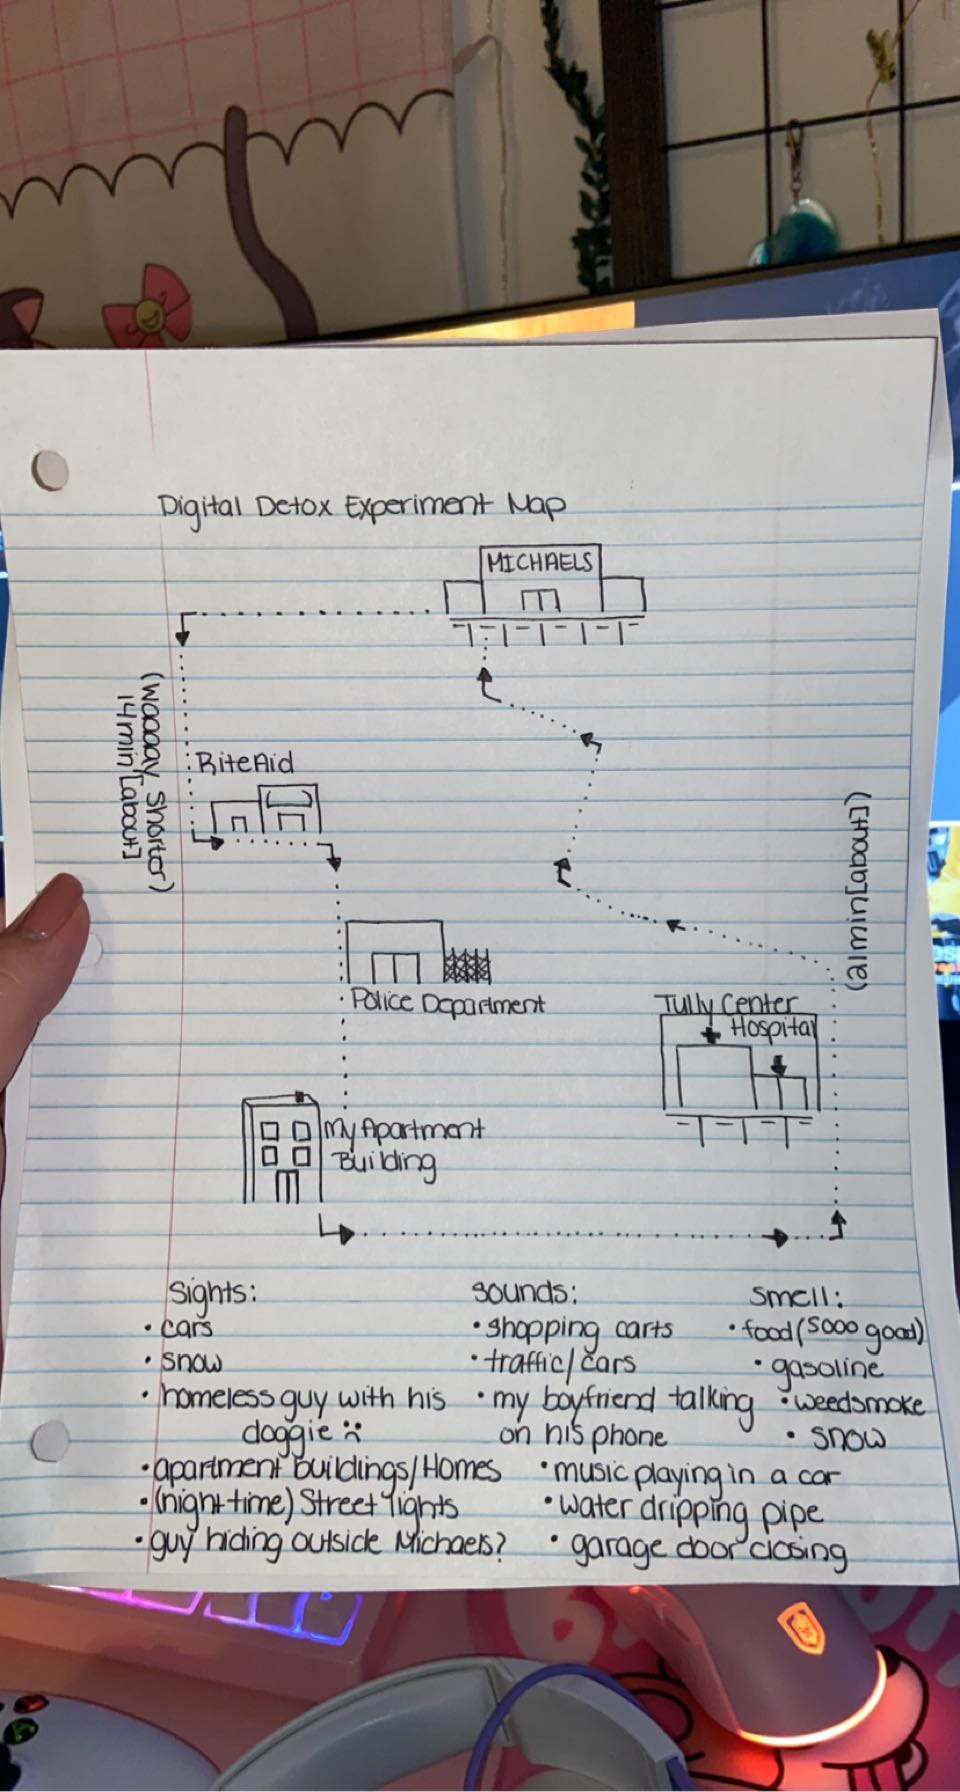 Digital Detox Experiment Map
MICHAELS
(Waaaay Shorter)
14min[about]
RiteAid
(21min[about])
Police Department
Tully Center
Hospital
My Apartment
Building
Sights:
• cars
• snow
• homeless guy with his
doggie :(
• apartment buildings/Homes
• (night-time) Street lights
• guy hiding outside Michaels?
Sounds:
• shopping carts
• traffic/cars
• my boyfriend talking
on his phone
• music playing in a car
• water dripping pipe
• garage door closing
Smell:
• food (sooo good)
• gasoline
• weedsmoke
• snow